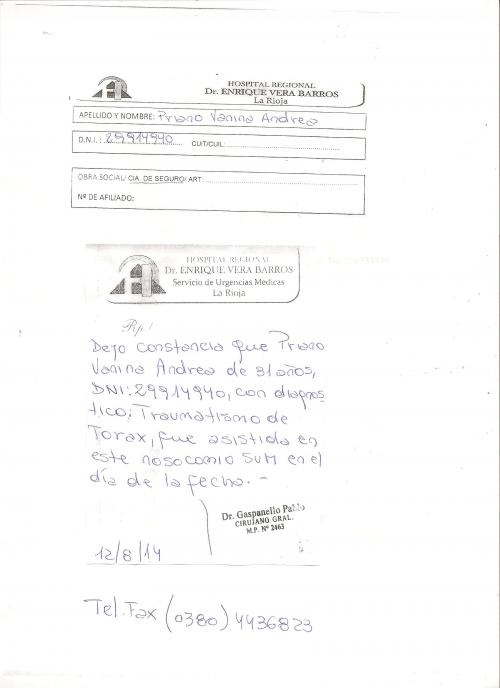 HOSPITAL REGIONAL
Dr. ENRIQUE VERA BARROS
La Rioja
APELLIDO Y NOMBRE: Priano Vanina Andrea
D.N.I.: 29914940 CUIT/CUIL:
OBRA SOCIAL/ CIA. DE SEGURO/ ART:
Nº DE AFILIADO:
HOSPITAL REGIONAL
Dr. ENRIQUE VERA BARROS
Servicio de Urgencias Medicas
La Rioja
Rp/
Dejo constancia que Priano
Vanina Andrea de 31 años,
DNI: 29914940, con diagnos
tico: Traumatismo de
Torax, fue asistida en
este nosocomio SUM en el
día de la fecha.-
Dr. Gaspanello Pablo
CIRUJANO GRAL.
M.P. Nº 2463
12/8/14
Tel.Fax (0380) 4436823